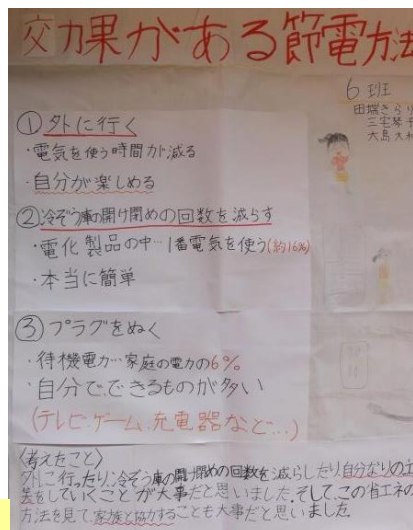 効果がある節電方法
6班
田端きらり
三宅琴子
大島大和
①外に行く
・電気を使う時間が減る
・自分が楽しめる
②冷ぞう庫の開け閉めの回数を減らす
・電化製品の中…1番電気を使う(約16%)
・本当に簡単
③プラグをぬく
・待機電力…家庭の電力の6%
・自分で、できるものが多い
(テレビ・ゲーム・充電器など…)
〈考えたこと〉
外に行ったり、冷ぞう庫の開け閉めの回数を減らしたり、自分なりの工
夫をしていくことが大事だと思いました。そして、この省エネの
方法を見て家族と協力することも大事だと思いました